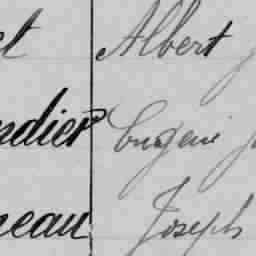 et Albert
ndier Eugène
neau Joseph